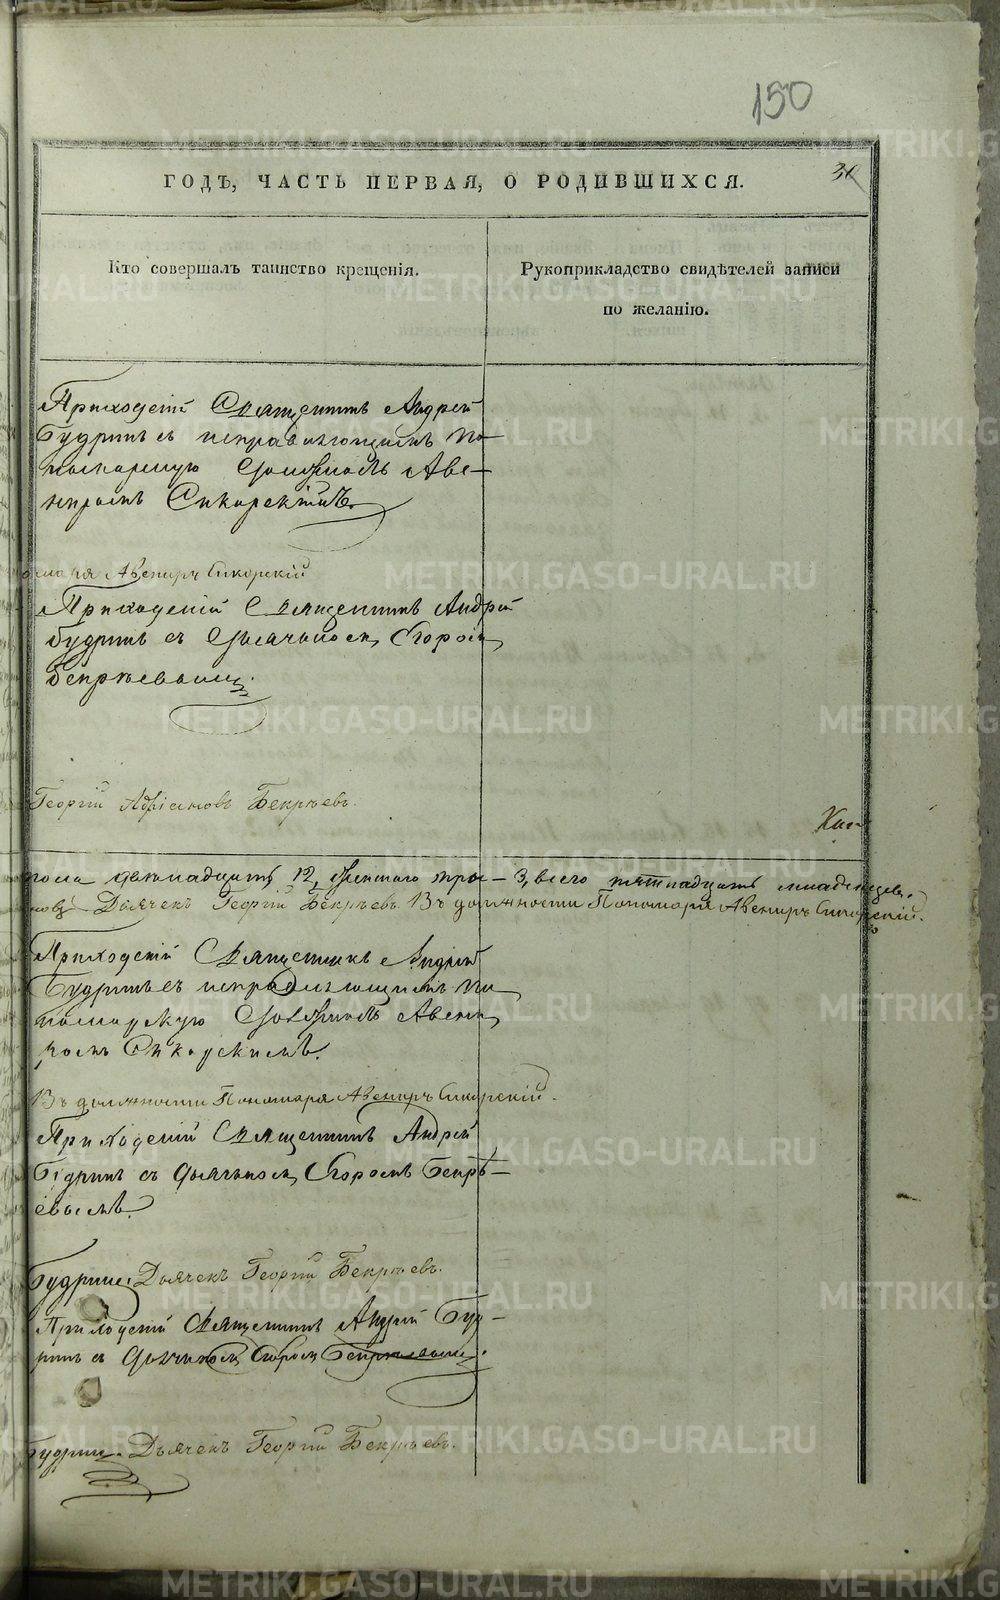 150
30
ГОДЪ, ЧАСТЬ ПЕРВАЯ, О РОДИВШИХСЯ.
Кто совершалъ таинство крещенія.
Рукоприкладство свидѣтелей записи
по желанію.
Приходскій Священникъ Андрей
Будринъ съ исправляющимъ по-
номарскую должность Аве-
ниромъ Сикорскимъ.
Авениръ Сикорскій
Приходскій Священникъ Андрей
Будринъ съ Дьячькомъ Егоромъ
Бекрѣевымъ.
Георгій Адріановъ Бекрѣевъ.
пола двѣнадцать 12, женскаго три-3, всего пятнадцать младенцевъ.
Дьячекъ Георгій Бекрѣевъ. Въ должности Пономаря Авениръ Сикорскій.
Приходскій Священникъ Андрей
Будринъ съ исправляющимъ по-
номарскую должность Авени-
ромъ Сикорскимъ.
Въ должности Пономаря Авениръ Сикорскій.
Приходскій Священникъ Андрей
Будринъ съ дьячькомъ Егоромъ Бекрѣ-
евымъ.
Будринъ. Дьячекъ Георгій Бекрѣевъ.
Приходскій Священникъ Андрей Буд-
ринъ съ Дьячькомъ Егоромъ Бекрѣевымъ.
Будринъ. Дьячекъ Георгій Бекрѣевъ.
METRIKI.GASO-URAL.RU